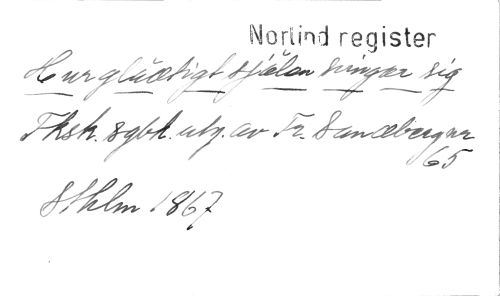 Norlind register
Hur gladtigt själen svingar sig
Fksk. sgbk. utg. av Fr. Sandberg nr
65
Sthlm 1867